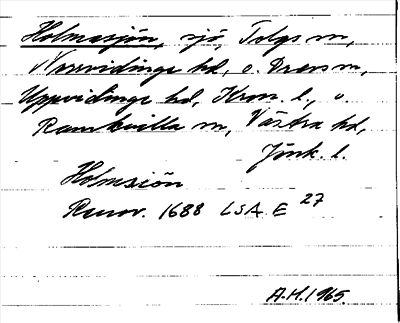 Holmasjön, sjö, Tolgs sn,
Norrvidinge hd, o. Drevs sn,
Uppvidinge hd, Kron. l., o.
Ramkvilla sn, Västra hd,
Jönk. l.
Holmsiön
Renov. 1688 LSA. E 27
A.H. 1965.